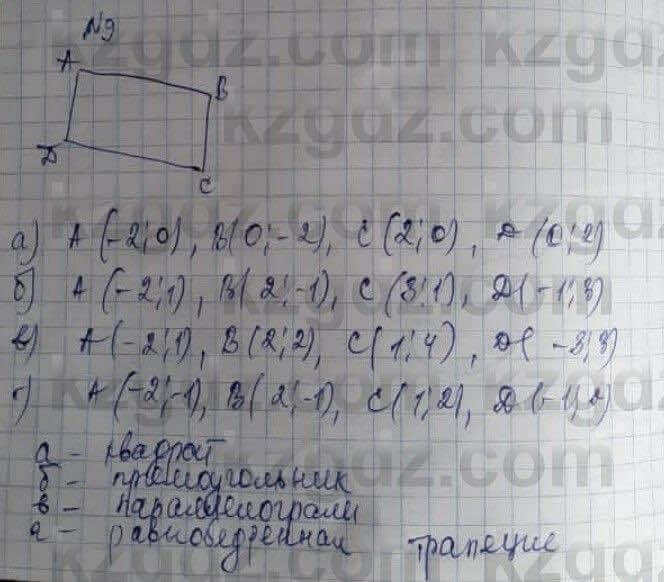 №9
A
B
D
C
а) A(-2;0), B(0;-2), C(2;0), D(0;2)
б) A(-2;1), B(2;-1), C(3;1), D(-1;3)
в) A(-2;1), B(2;2), C(1;4), D(-3;3)
г) A(-2;-1), B(2;-1), C(1;2), D(-1;2)
а - квадрат
б - прямоугольник
в - параллелограмм
г - равнобедренная трапеция
kzgdz.com